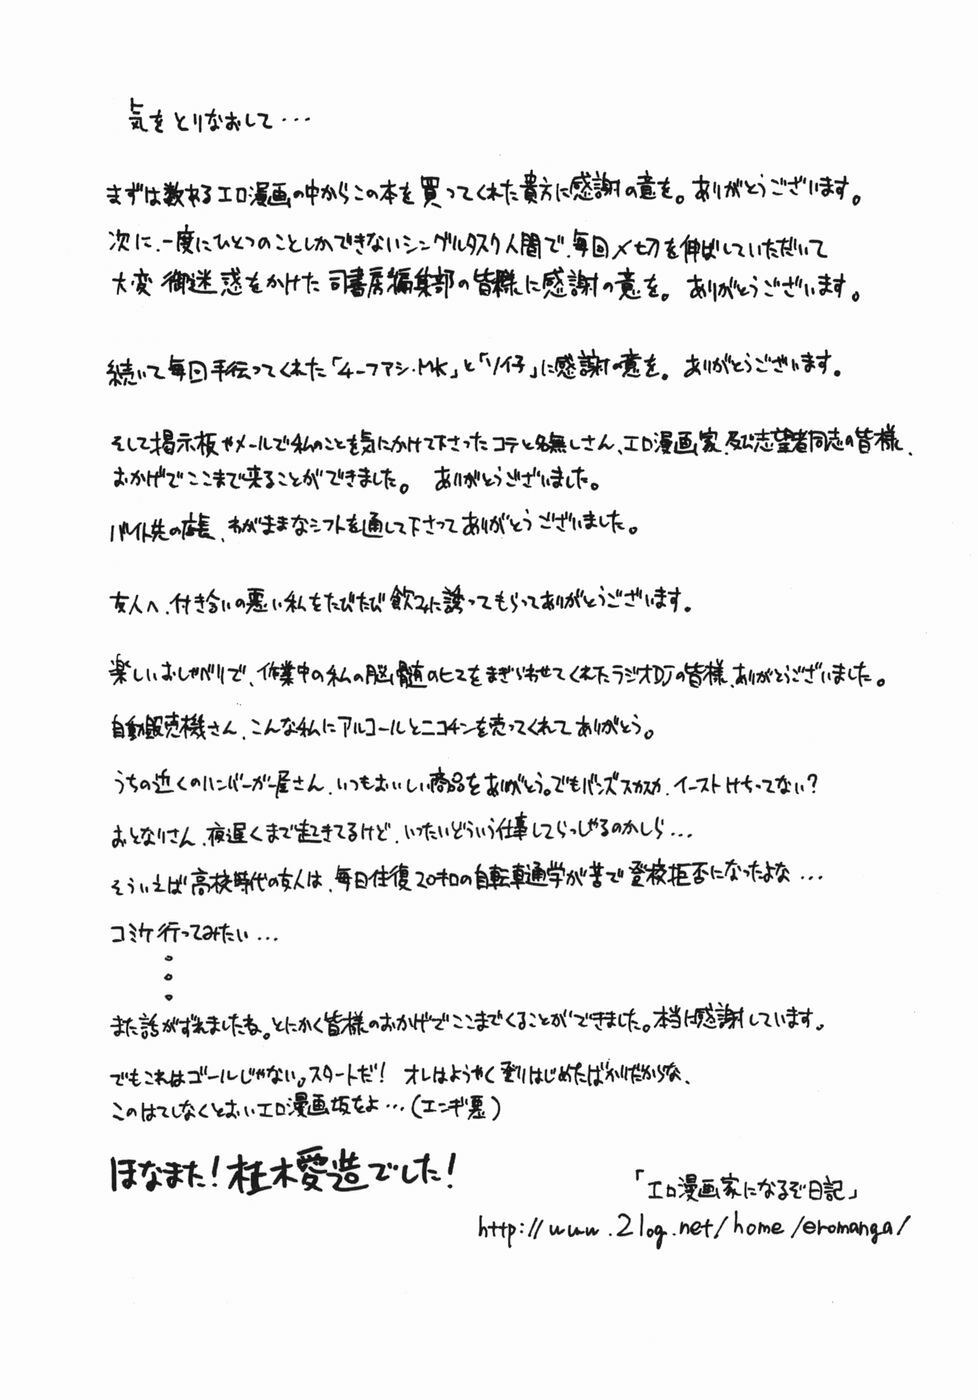 気をとりなおして・・・
まずは数ある工口漫画の中からこの本を買ってくれた貴方に感謝の意を。ありがとうございます。
次に、一度にひとつのことしかできないシングルタスク人間で、毎回〆切を伸ばしていただいて
大変御迷惑をかけた司書房編集部の皆様に感謝の意を。ありがとうございます。
続いて毎回手伝ってくれた「4-ファシ・MK」と「ソ仔」に感謝の意を。ありがとうございます。
そして掲示板やメールで私のことを気にかけて下さったコテと名無しさん、エロ漫画家、及び志望者同志の皆様、
おかげでここまで来ることができました。ありがとうございました。
バイト先の店長、わがままなシフトを通して下さってありがとうございました。
友人へ、付き合いの悪い私をたびたび飲みに誘ってもらってありがとうございます。
楽しいおしゃべりで、作業中の私の脳髄のヒマをまぎらわせてくれたラジオDJの皆様、ありがとうございました。
自動販売機さん、こんな私にアルコールとニコチンを売ってくれてありがとう。
うちの近くのハンバーガー屋さん、いつもおいしい商品をありがとう。でもバンズスカスカ、イーストけちってない?
おとなりさん、夜遅くまで起きてるけど、いったいどういう仕事してらっしゃるのかしら・・・
そういえば高校時代の友人は、毎日往復20キロの自転車通学が苦で登校拒否になったよな・・・
コミケ行ってみたい・・・
。
。
。
また話がずれましたね。とにかく皆様のおかげでここまでくることができました。本当に感謝しています。
でもこれはゴールじゃない。スタートだ! オレはようやく登りはじめたばかりだからな、
このはてしなくとおいエロ漫画坂をよ・・・(エンギ悪)
ほなまた!柱木愛造でした!
「エロ漫画家になるぞ日記」
http://www.2log.net/home/eromanga/